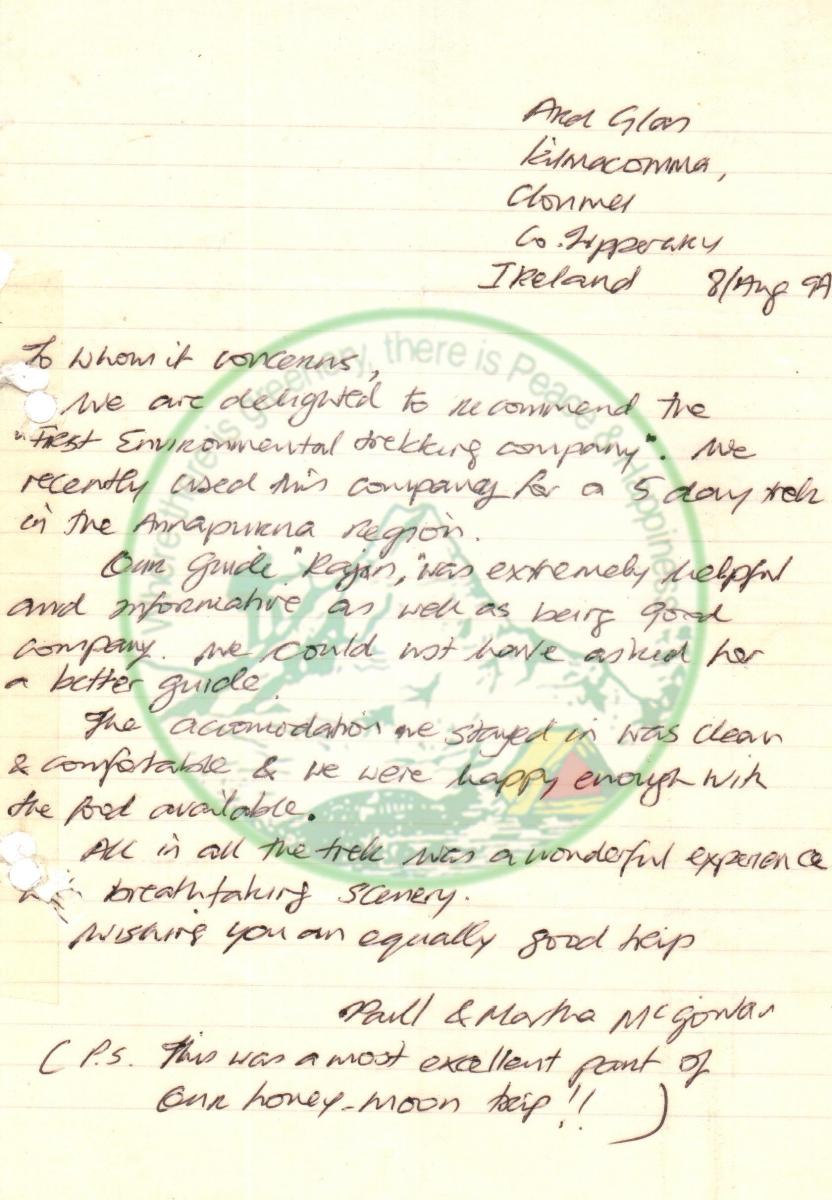 Ard Glas
Kilmacomma,
Clonmel
Co. Tipperary
Ireland 8/Aug 9
To whom it concerns,
We are delighted to recommend the
"First Environmental trekking company". We
recently used this company for a 5 day trek
in the Annapurna region.
Our guide "Rajan," was extremely helpful
and informative as well as being good
company. We could not have asked for
a better guide.
The accomodation we stayed in was clean
& comfortable & we were happy enough with
the food available.
All in all the trek was a wonderful experience
breathtaking scenery.
Wishing you an equally good trip
Paul & Martha McGowan
(P.S. This was a most excellent part of
our honey-moon trip!! )
Where there is greenery, there is Peace & Happiness